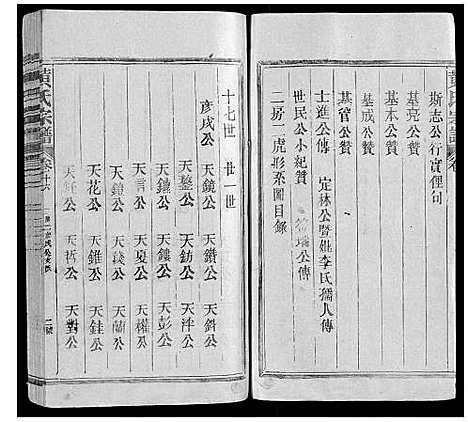 黃氏宗譜 卷
斯志公行實俚句
基亮公贊
基本公贊
基成公贊
基管公贊
士進公傳 定林公暨妣李氏孺人傳
世民公小紀贊 公傳
二房二虎形系圖目錄
十七世 廿一世
彥成公 天鏡公 天鑽公 天錯公
天鏊公 天鈁公 天洋公
天鑲公 天鏤公 天彭公
天言公 天夏公 天權公
天鎧公 天錢公 天蘭公
天花公 天錐公 天銈公
天鈺公 天哲公 天對公
黃氏宗譜 卷
二號